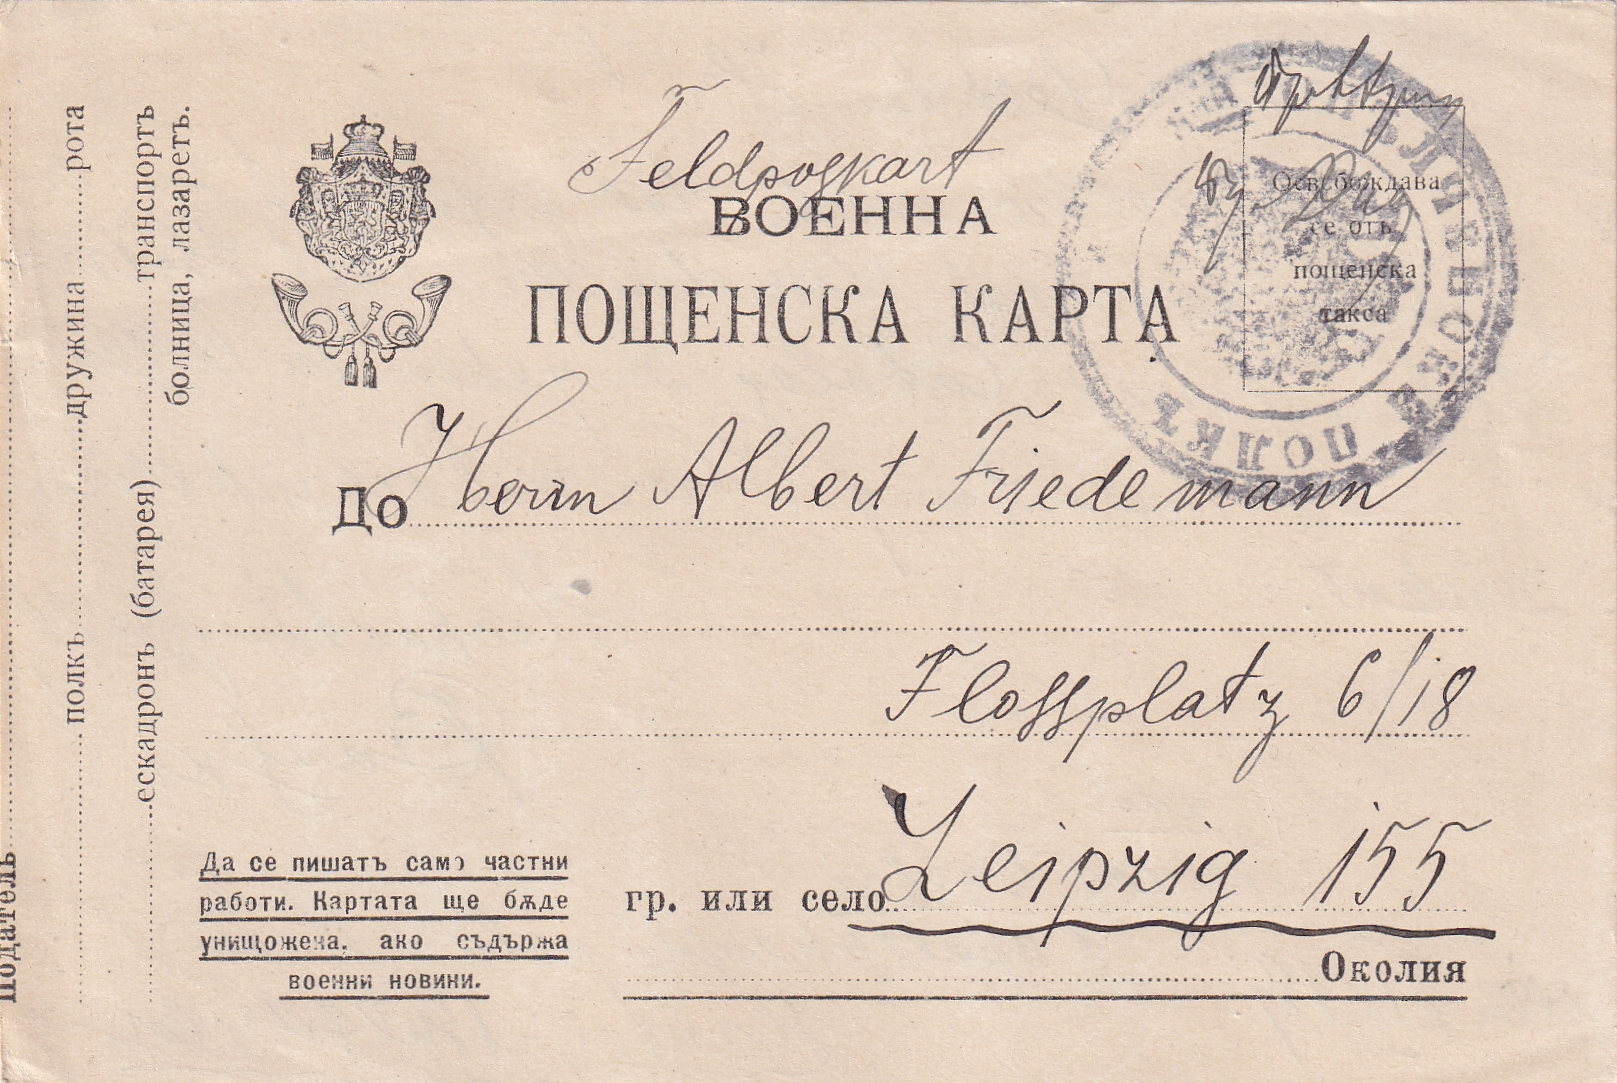 Feldpostkart
ВОЕННА
ПОЩЕНСКА КАРТА
Освобождава
се отъ
пощенска
такса
ПОЛКЪ
До Herrn Albert Friedemann
Flossplatz 6/18
гр. или село Leipzig 155
Околия
Да се пишатъ само частни
работи. Картата ще бѫде
унищожена, ако съдържа
военни новини.
Податель
полкъ дружина рота
ескадронъ (батарея) транспортъ
болница, лазаретъ.